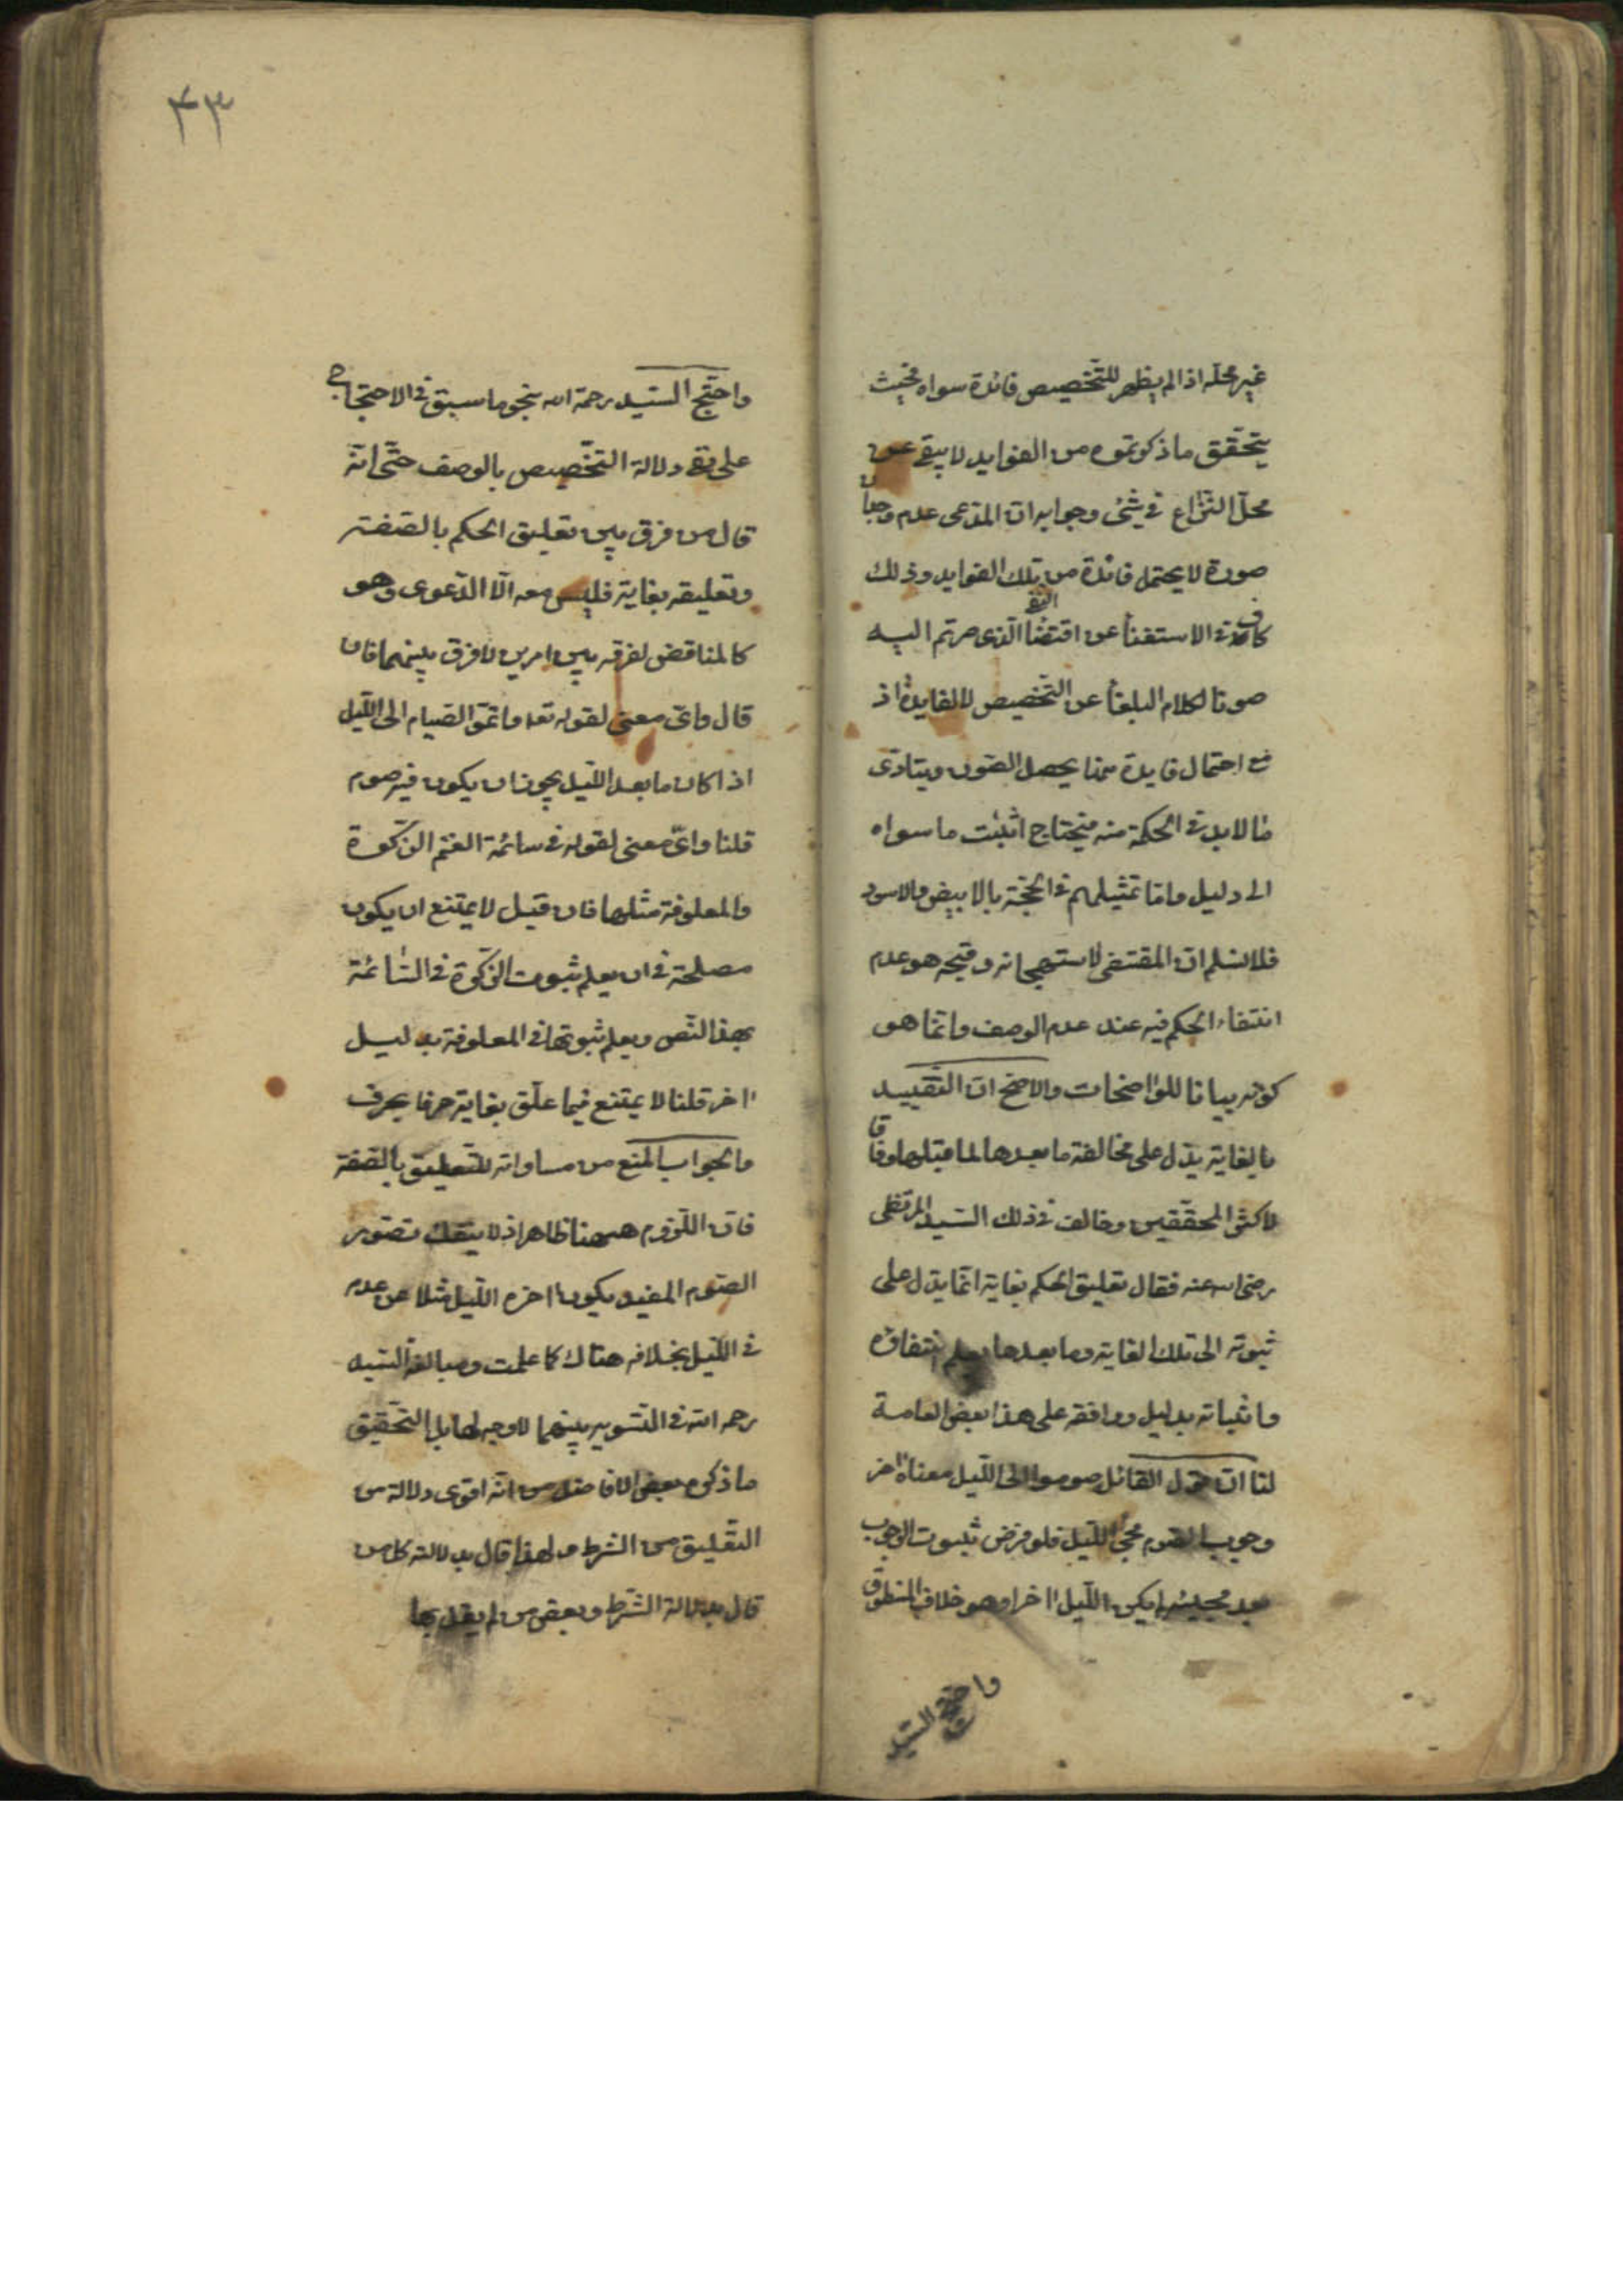 غير محله اذا لم يظهر للتخصيص فائدة سواه فحيث
يتحقق ما ذكرتموه من الفوايد لا يبقى من
محل النزاع في شئ وجوابه ان المدعى عدم وجدان
صورة لا يحتمل فائدة من تلك الفوايد وذلك
كاف في الاستغناء عن اقتضاء النفي الذى صرتم اليه
صونا لكلام البلغاء عن التخصيص لا لفايدة اذ
مع احتمال فايدة منها يحصل الصون ويتادى
ما لا بد في الحكمة منه فيحتاج اثبات ما سواه
الى دليل واما تمثيلهم في الحجة بالابيض والاسود
فلا نسلم ان المقتضى لاستهجانه وقبحه هو عدم
انتفاء الحكم فيه عند عدم الوصف وانما هو
كونه بيانا للواضحات والاصح ان التقييد
بالغاية يدل على مخالفة ما بعدها لما قبلها وفاقا
لاكثر المحققين وخالف في ذلك السيد المرتضى
رضى الله عنه فقال تعليق الحكم بغاية انما يدل على
ثبوته الى تلك الغاية وما بعدها يعلم انتفاؤه
واثباته بدليل ووافقه على هذا بعض العامة
لنا ان قول القائل صوموا الى الليل معناه اخر
وجوب الصوم مجئ الليل فلو فرض ثبوت الوجوب
بعد مجيئه لم يكن الليل اخرا وهو خلاف المنطوق
واحتج السيد
٤٣
واحتج السيد رحمة الله بنحو ما سبق في الاحتجاج
على نفى دلالة التخصيص بالوصف حتى انه
قال من فرق بين تعليق الحكم بالصفة
وتعليقه بغاية فليس معه الا الدعوى وهو
كالمناقض لفرقه بين امرين لا فرق بينهما فان
قال واى معنى لقوله تعه واتموا الصيام الى الليل
اذا كان ما بعد الليل يجوز ان يكون فيه صوم
قلنا واى معنى لقوله في سائمة الغنم الزكوة
والمعلوفة مثلها فان قيل لا يمتنع ان يكون
مصلحة في ان يعلم ثبوت الزكوة في السائمة
بهذا النص ويعلم ثبوتها في المعلوفة بدليل
اخر قلنا لا يمتنع فيما علق بغاية حرفا بحرف
والجواب المنع من مساواته للتعليق بالصفة
فان اللزوم ههنا ظاهر اذ لا ينفك تصور
الصوم المقيد بكون اخره الليل مثلا عن عدمه
في الليل بخلافه هناك كما علمت ومبالغة السيد
رحمه الله في التسوية بينهما لا وجه لها بل التحقيق
ما ذكره بعض الافاضل من انه اقوى دلالة من
التعليق من الشرط ولهذا قال بدلالته كل من
قال بدلالة الشرط وبعض من لم يقل بها